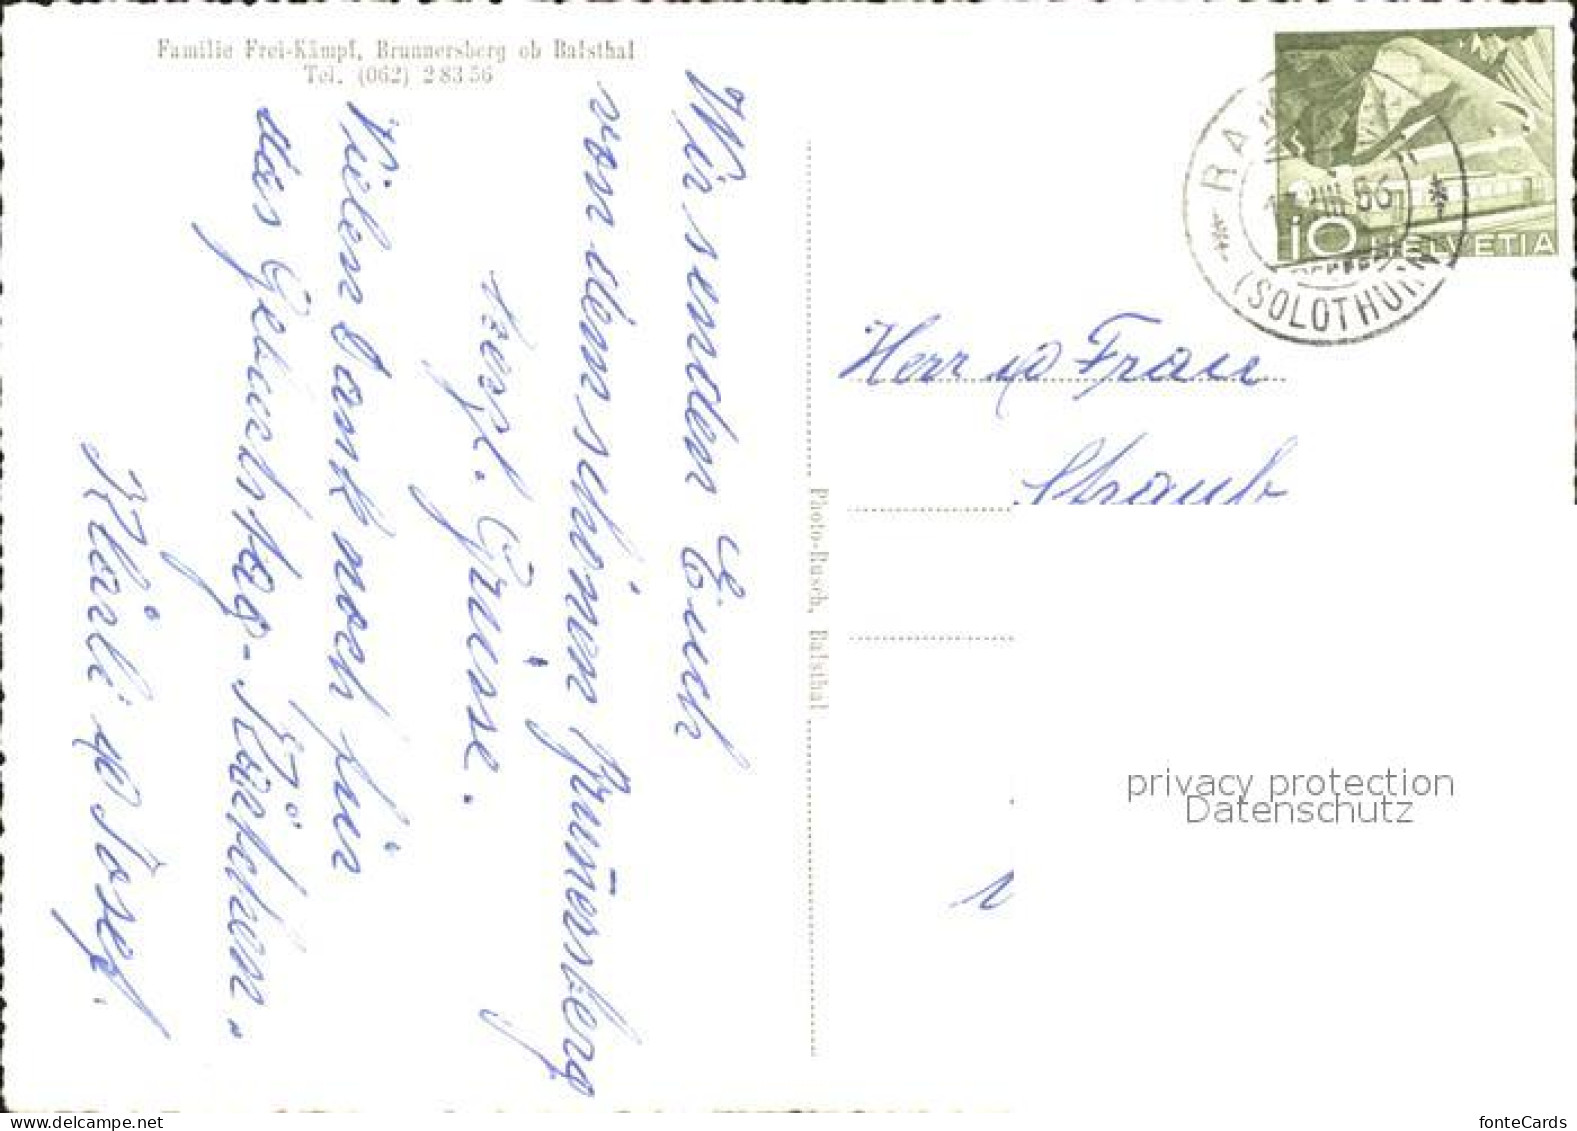 Familie Frei-Kämpf, Brunnersberg ob Balsthal
Tel. (062) 2 83 56
Wir senden Euch
von dem schönen Brunersberg
herzl. Grüsse.
Vielen Dank noch für
das Geburtstags-Kärtchen.
Klärli & Josef.
Photo-Rusch, Balsthal
10 HELVETIA
(SOLOTHURN)
Herr & Frau
Straub
privacy protection
Datenschutz
fonteCards